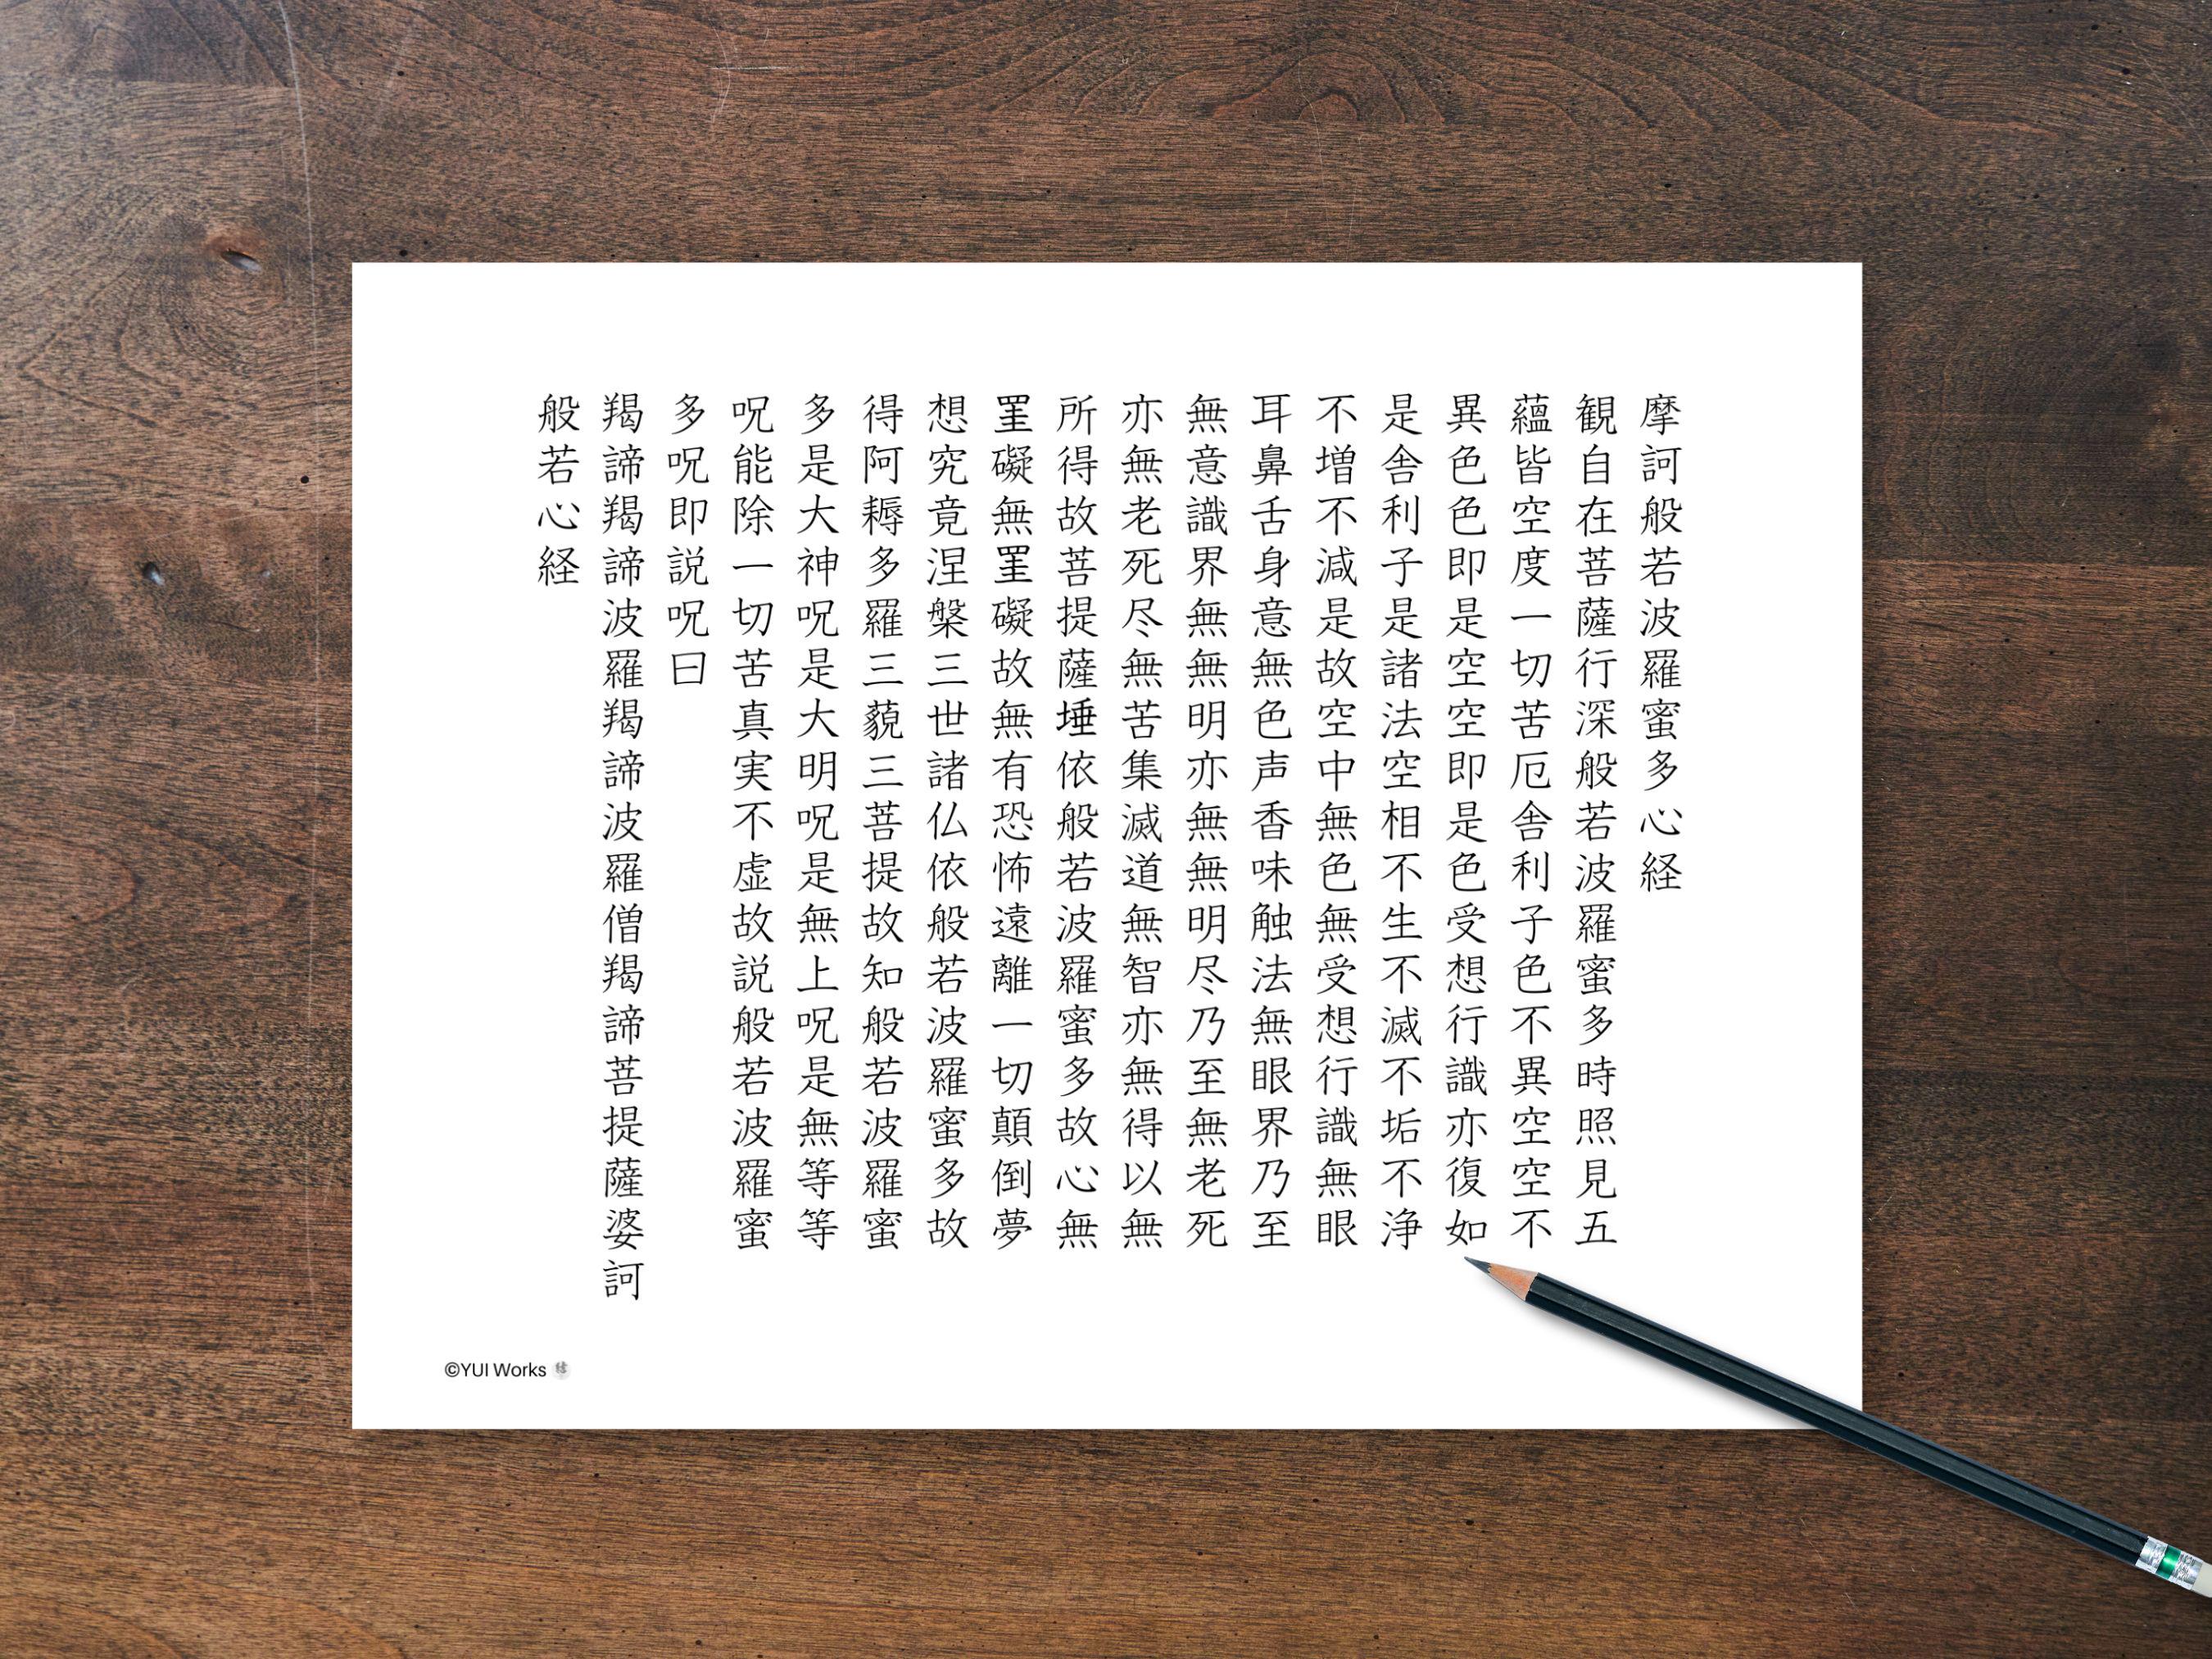 摩訶般若波羅蜜多心経
観自在菩薩行深般若波羅蜜多時照見五
蘊皆空度一切苦厄舎利子色不異空空不
異色色即是空空即是色受想行識亦復如
是舎利子是諸法空相不生不滅不垢不浄
不増不減是故空中無色無受想行識無眼
耳鼻舌身意無色声香味触法無眼界乃至
無意識界無無明亦無無明尽乃至無老死
亦無老死尽無苦集滅道無智亦無得以無
所得故菩提薩埵依般若波羅蜜多故心無
罣礙無罣礙故無有恐怖遠離一切顛倒夢
想究竟涅槃三世諸仏依般若波羅蜜多故
得阿耨多羅三藐三菩提故知般若波羅蜜
多是大神呪是大明呪是無上呪是無等等
呪能除一切苦真実不虚故説般若波羅蜜
多呪即説呪曰
羯諦羯諦波羅羯諦波羅僧羯諦菩提薩婆訶
般若心経
©YUI Works